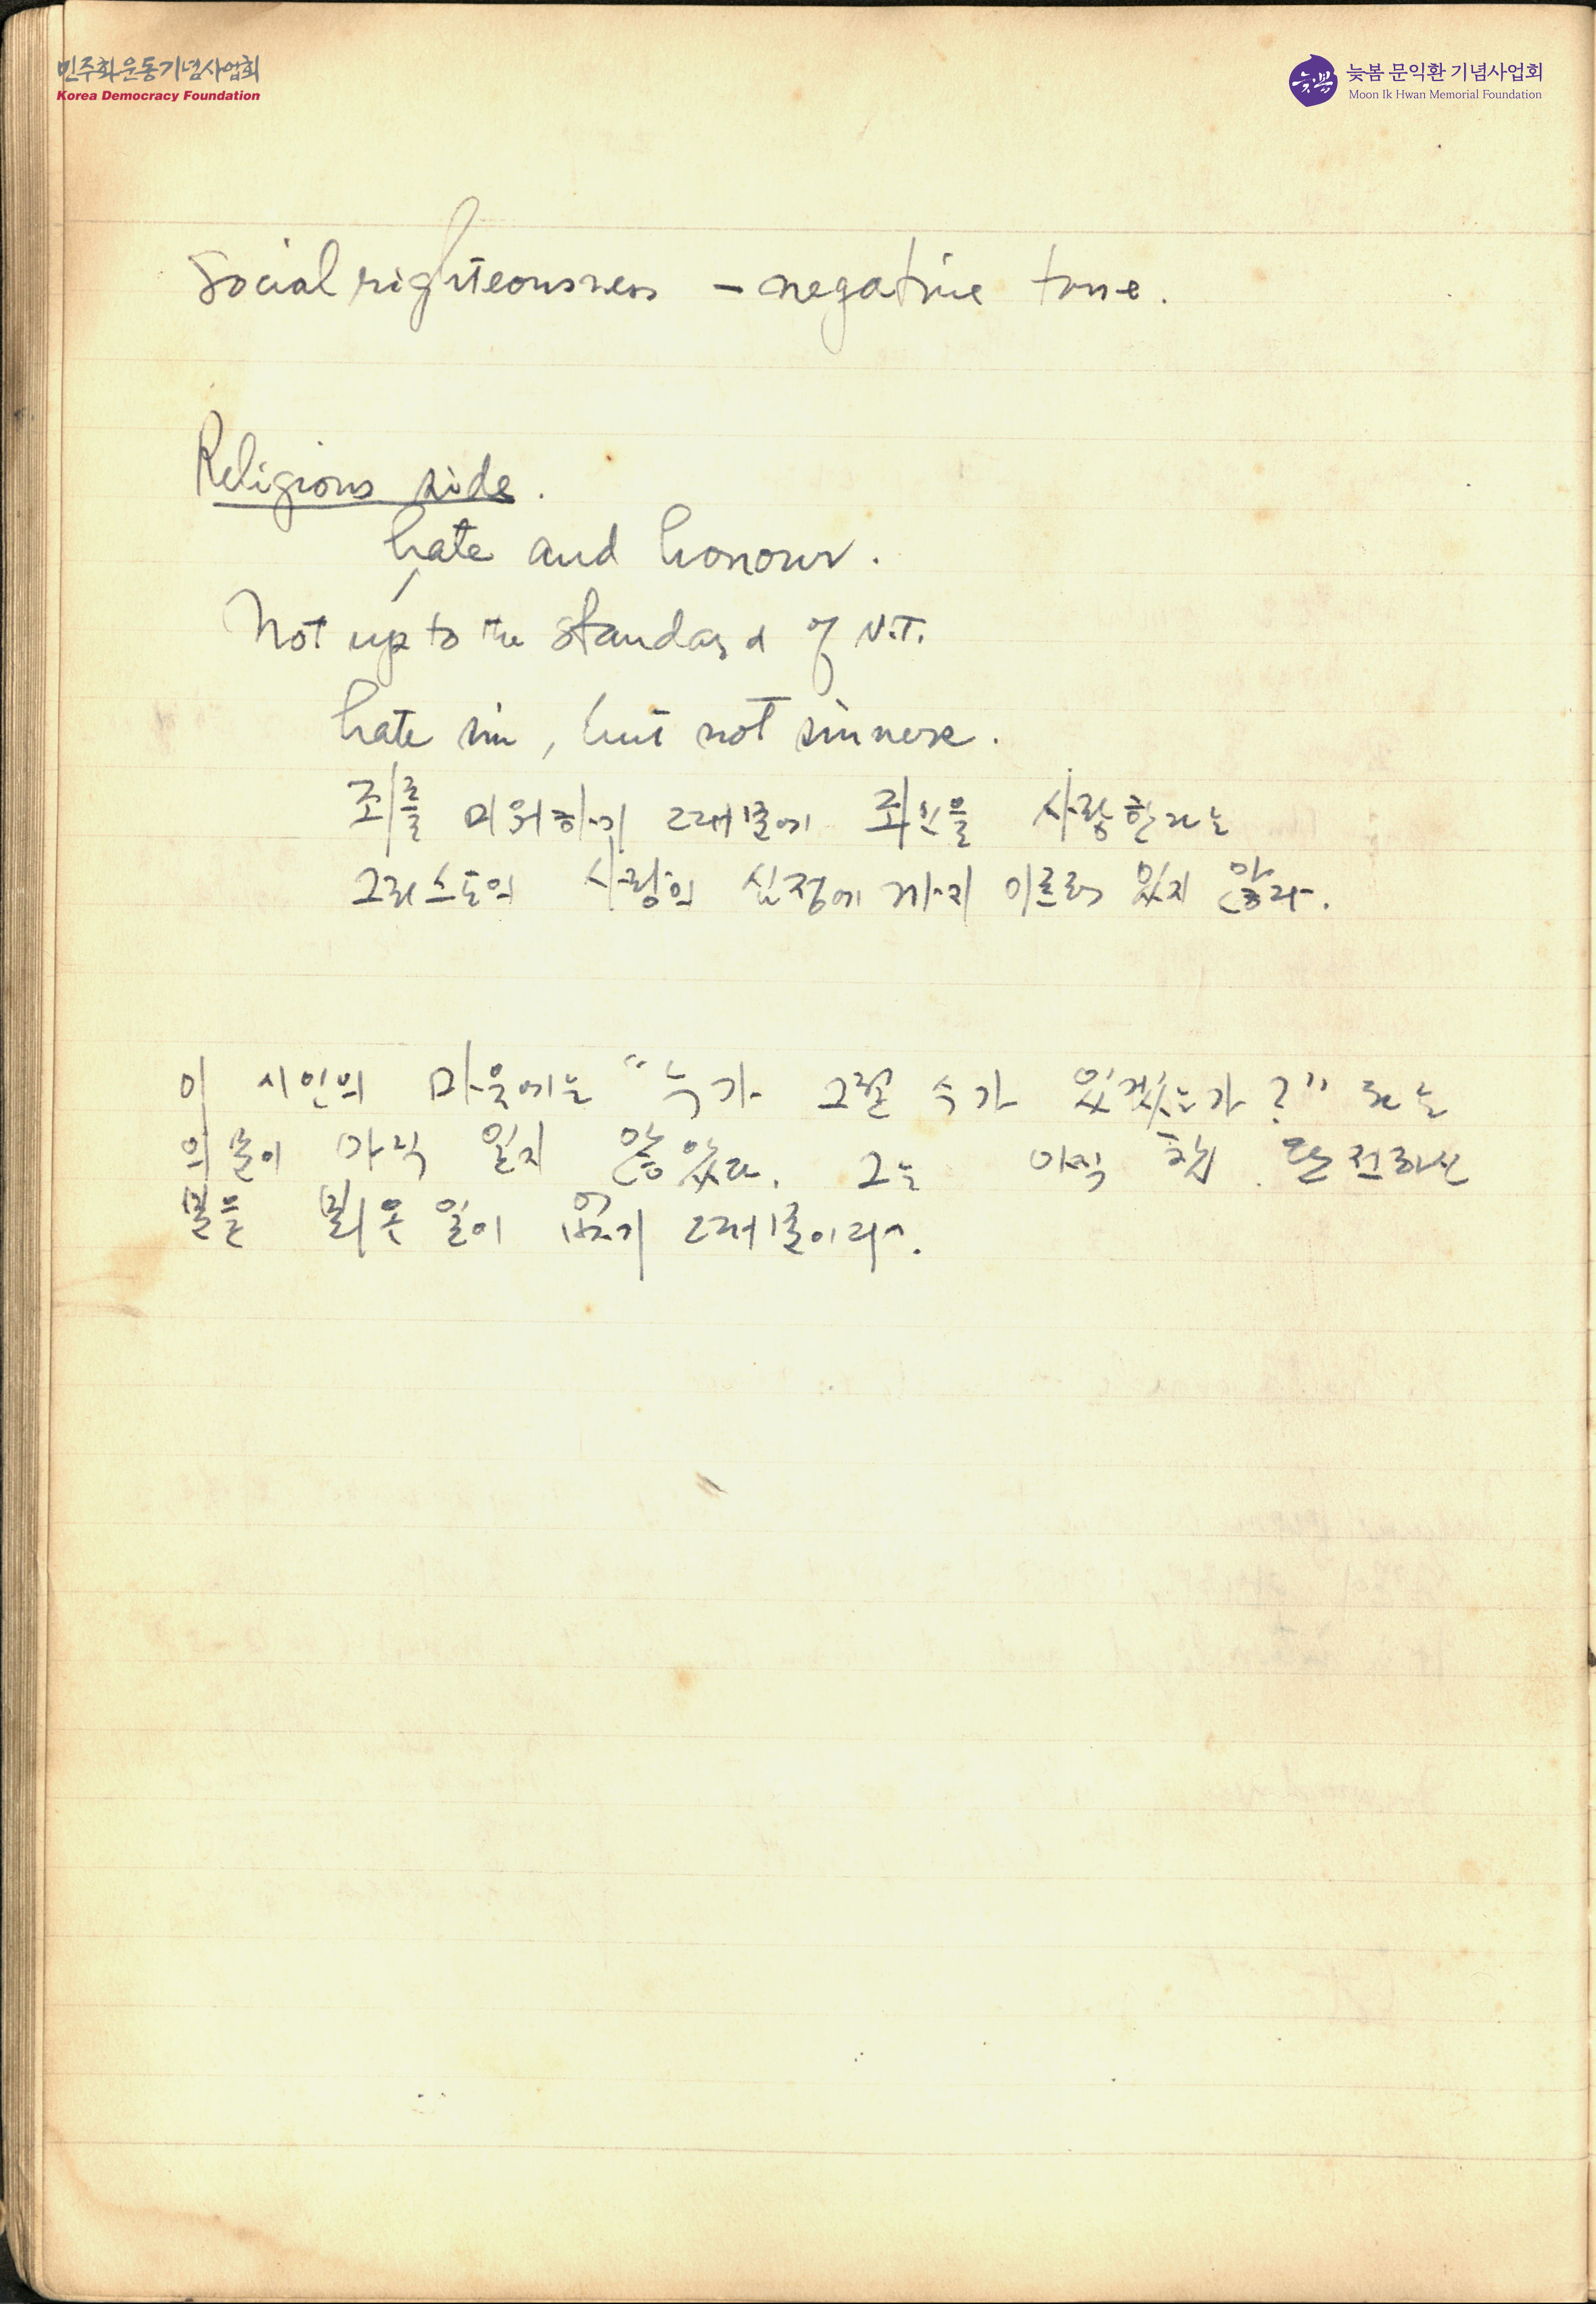 민주화운동기념사업회
Korea Democracy Foundation
늦봄 문익환 기념사업회
Moon Ik Hwan Memorial Foundation
Social righteousness – negative tone.
Religious side.
hate and honour.
Not up to the standard of N.T.
hate sin, but not sinners.
죄를 미워하기 때문에 죄인을 사랑한다는
그리스도의 사랑의 심정에까지 이르러 있지 않다.
이 시인의 마음에는 “누가 그럴 수가 있겠는가?” 라는
의문이 아직 일지 않았다. 그는 아직
일이 없기 때문이라.